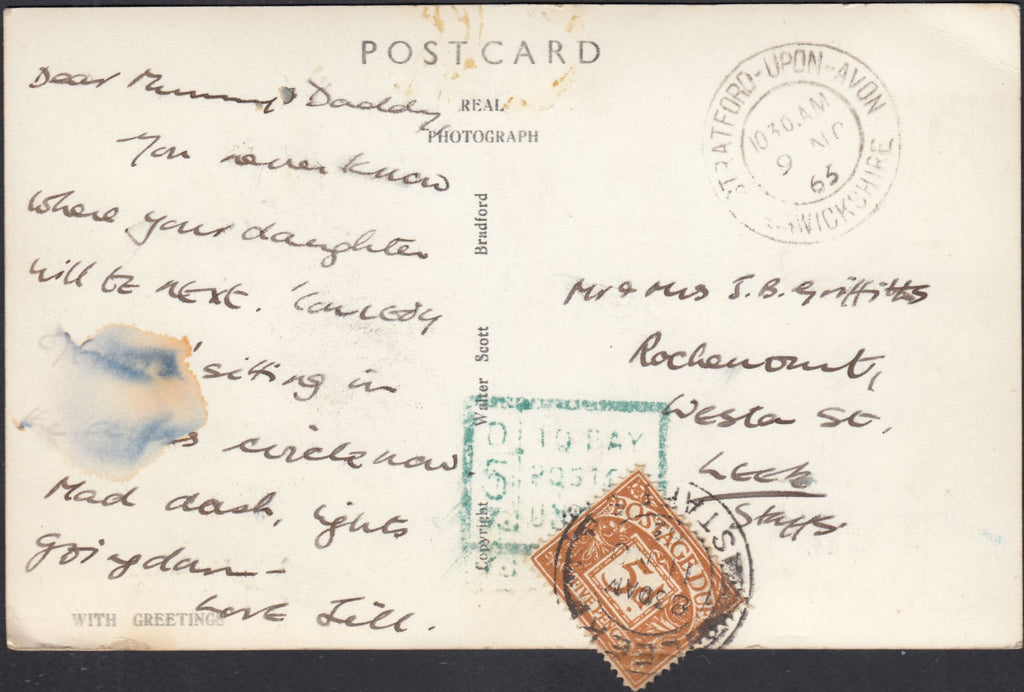 POSTCARD
REAL
PHOTOGRAPH
Dear Mummy & Daddy
You never know
where your daughter
will be next. 'Comedy
' sitting in
the circle now
Mad dash, lights
going down –
Love Jill.
WITH GREETINGS
Copyright Walter Scott Bradford
STRATFORD-UPON-AVON
1030 AM
9 NO
65
WICKSHIRE
Mr & Mrs J.B. Griffitts
Rochemount,
Westn St,
LEEK
Staffs.
TO PAY
5
POSTAGE DUE
5
LEEK